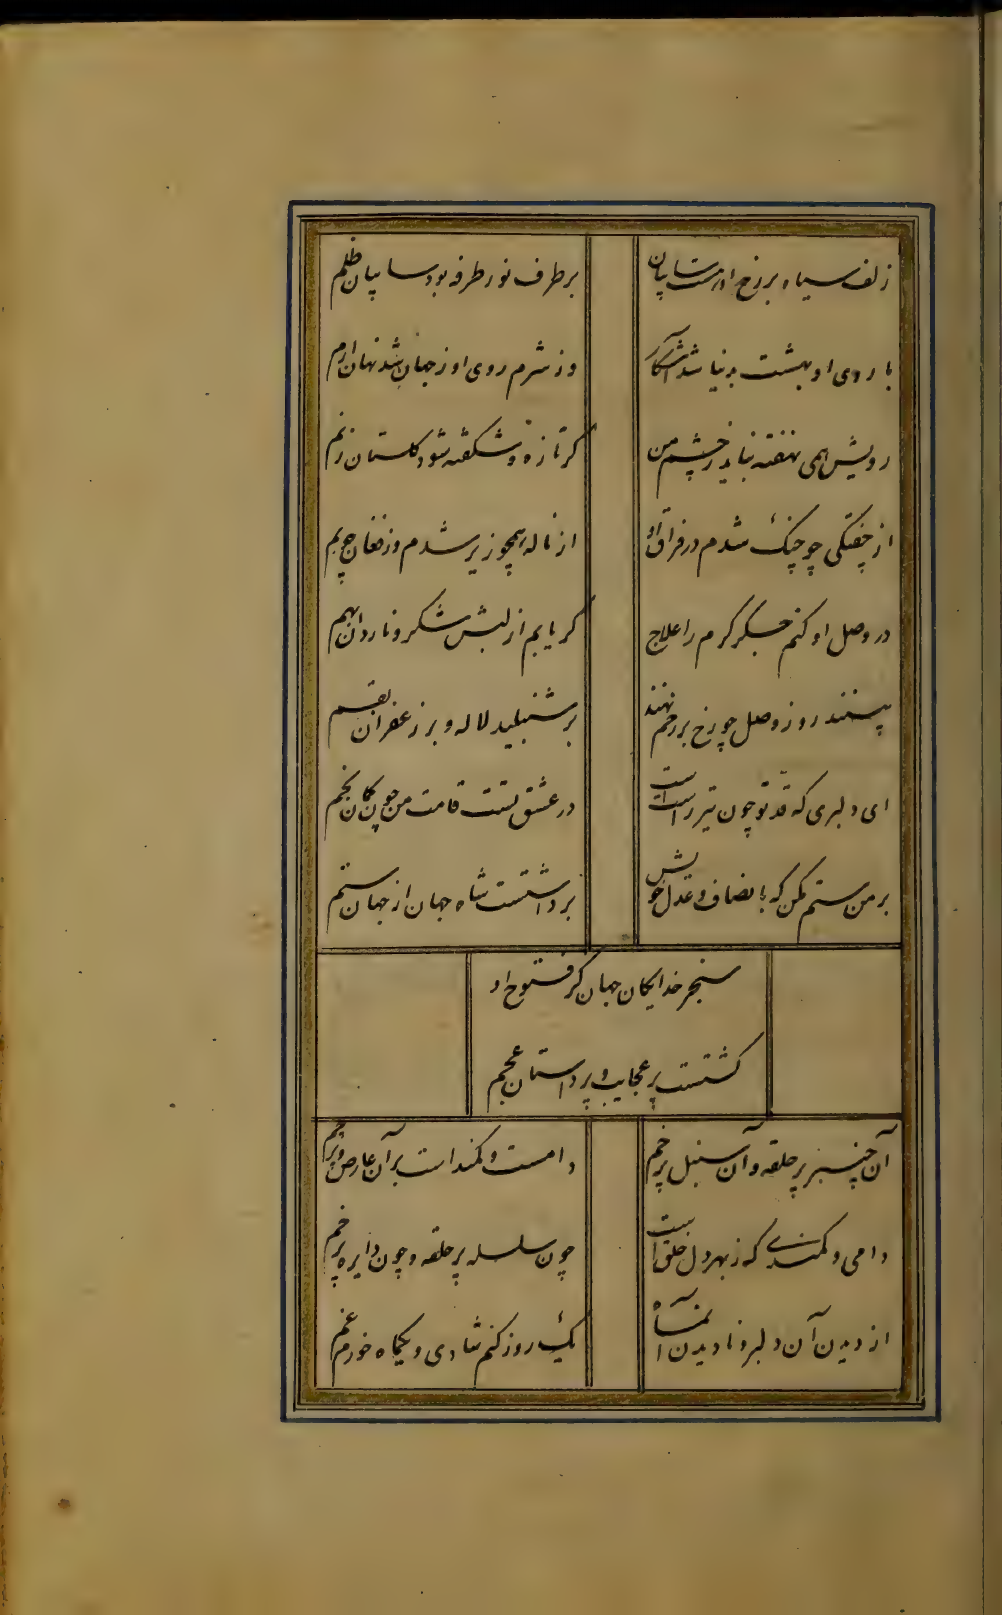 زلف سیاه بر رخ او هست سایبان
بر طرف نور طرفه بود سایبان ظلم
با روی او بهشت بدنیا شد آشکار
وز شرم روی او ز جهان شد نهان ارم
رویش همی نهفته نباید ز چشم من
کر تازه و شکفته شود کلستان زنم
از خفتکی چو چنک شدم در فراق او
از ناله همچو زیر شدم وز فغان چو بم
در وصل او کنم جکر کرم را علاج
کر یابم از لبش شکر و ناردان بهم
بیند روز وصل چو رخ بر رخم نهند
بر شنبلید لاله و بر زعفران بقم
ای دلبری که قد تو چون تیر راست است
در عشق تست قامت من چون کمان بخم
بر من ستم مکن که بانصاف و عدل خویش
برداشتست شاه جهان از جهان ستم
سنجر خدایکان جهان کز فتوح او
کشتست پر عجایب و پر داستان عجم
آن چنبر پر حلقه و آن سنبل پر خم
دامست و کمند است بر آن عارض و پرچم
دامی و کمندی که ز بهر دل خلق است
چون سلسله پر حلقه و چون دایره پر خم
از دیدن آن دلبر و نادیدن آن ماه
یک روز کنم شادی و یکماه خورم غم